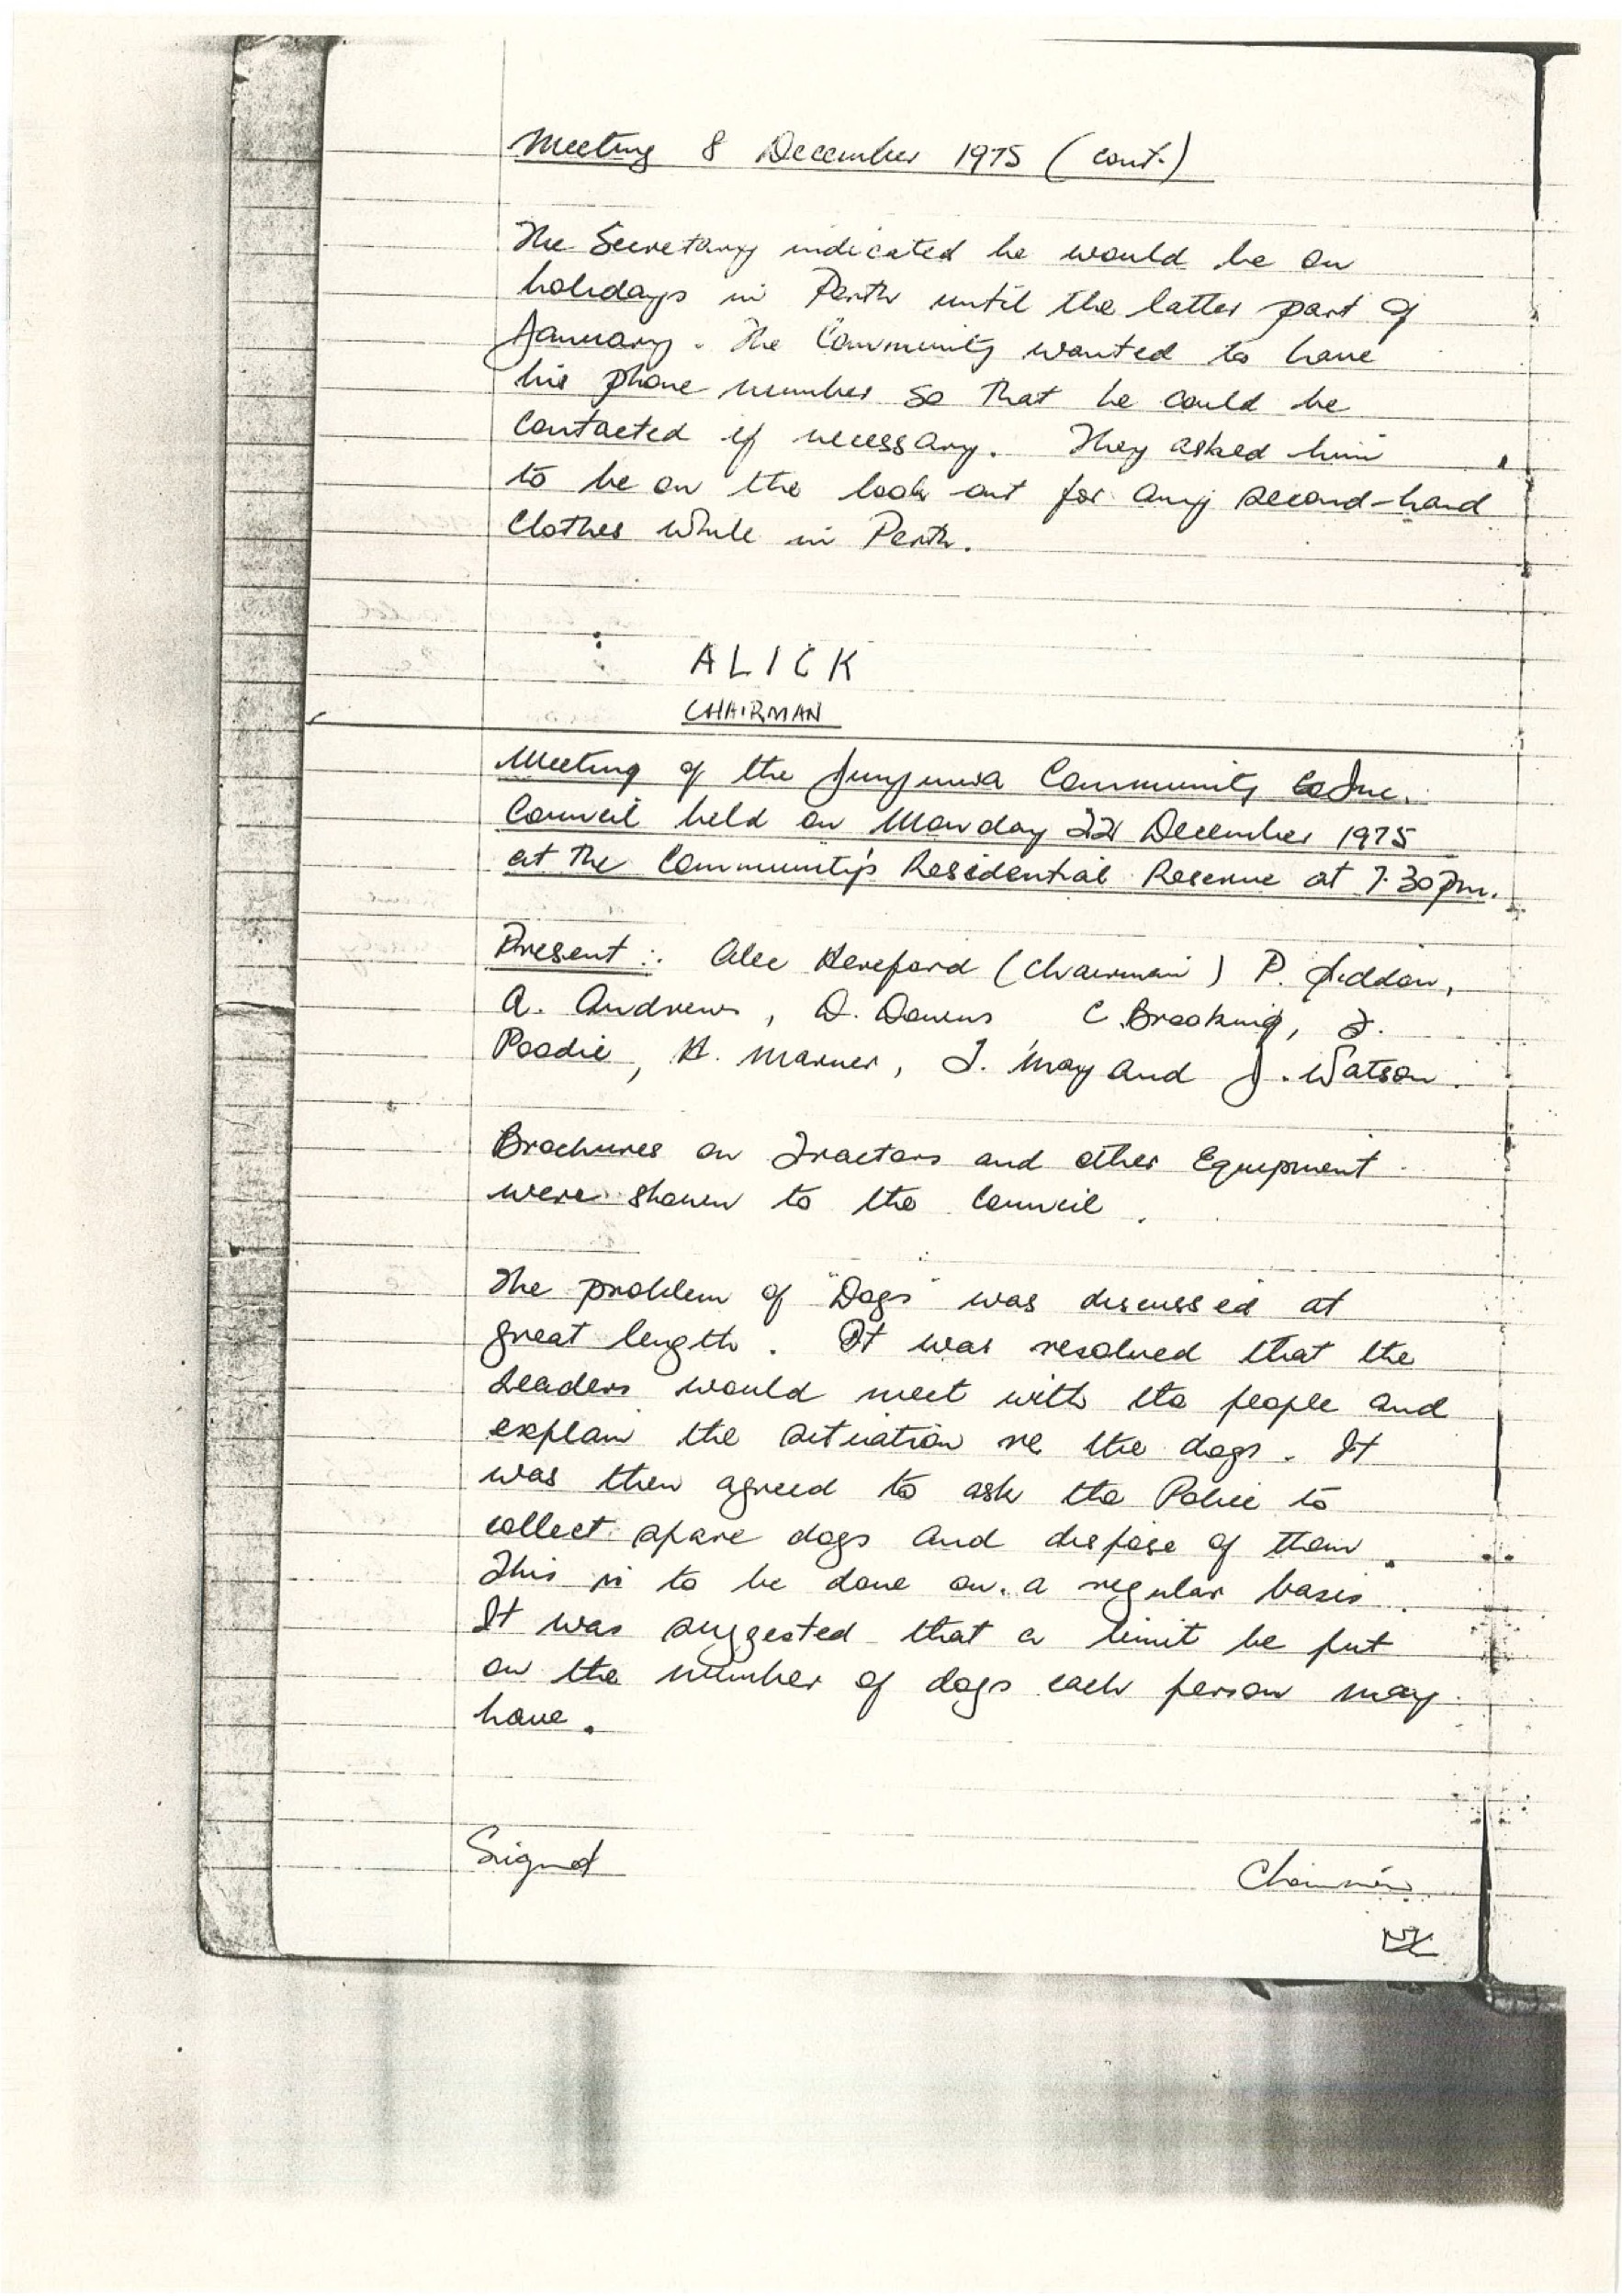 Meeting 8 December 1975 (cont.)
The Secretary indicated he would be on
holidays in Perth until the latter part of
January. The Community wanted to have
his phone number so that he could be
contacted if necessary. They asked him
to be on the look out for any second-hand
clothes while in Perth.
ALICK
CHAIRMAN
Meeting of the Junjuwa Community Inc.
Council held on Monday 22 December 1975
at the Community's Residential Reserve at 7.30pm.
Present: Alec Hereford (Chairman) P. Seddon,
A. Andrews, D. Downs C. Brooking, J.
Poodie, H. Marner, J. May and J. Watson.
Brochures on Tractors and other Equipment
were shown to the Council.
The problem of "Dogs" was discussed at
great length. It was resolved that the
Leaders would meet with the people and
explain the situation re the dogs. It
was then agreed to ask the Police to
collect spare dogs and dispose of them.
This is to be done on a regular basis.
It was suggested that a limit be put
on the number of dogs each person may
have.
Signed Chairman